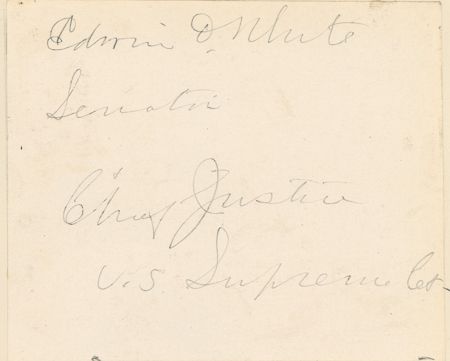 Edwin D. White
Senator
Chief Justice
U.S. Supreme Ct.